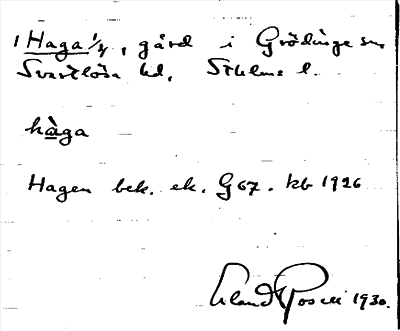 1 Haga 1/4, gård i Grödinge sn
Svartlösa hd, Sthlms l.
hàga
Hagen bek. ek. G67. kb 1926
Erland Rosell 1930.